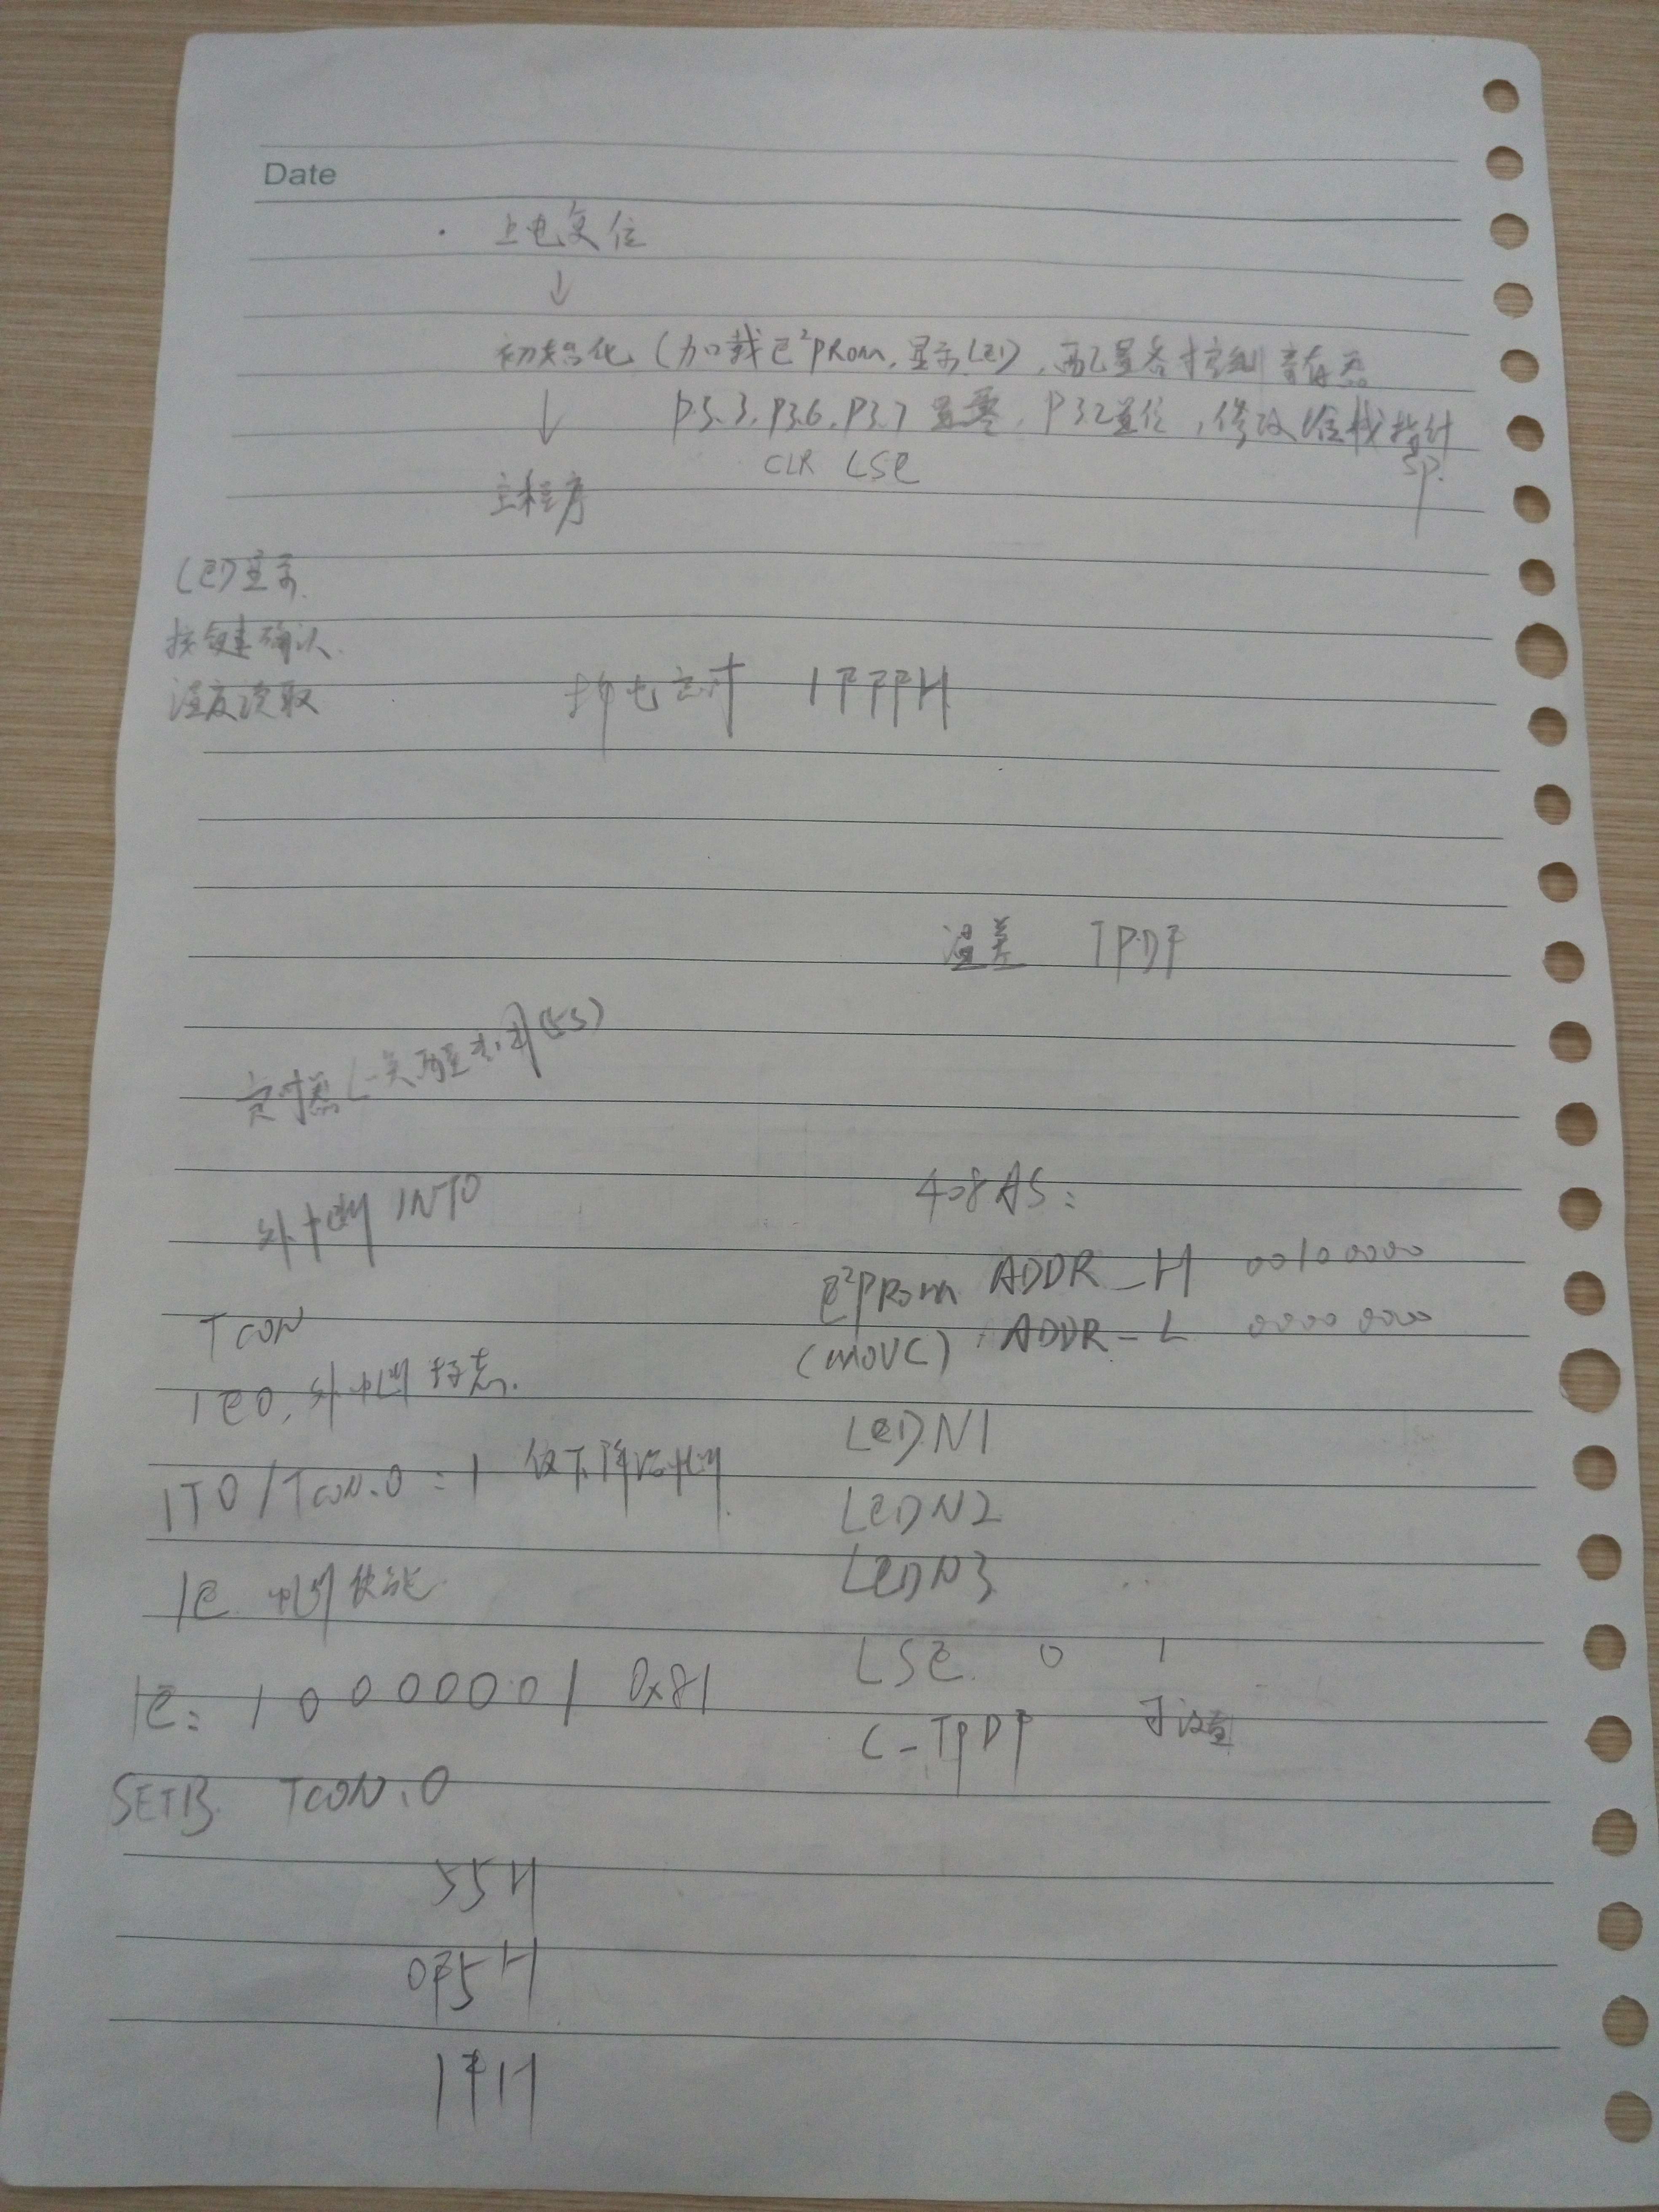 Date
上电复位
↓
初始化（加载E²PRom,显示LED）,配置各控制寄存器
↓ P3.3,P3.6,P3.7置零,P3.2置位,修改堆栈指针
CLR LSE SP.
主程序
LED显示
按键确认
温度读取
掉电定时 1FFFH
温差 TPDF
定时器 (5S)
外中断 INT0
408AS:
E²PRom ADDR_H 00100000
(MOVC) ADDR_L 00000000
TCON
IE0,外中断标志.
IT0/TCON.0=1 仅下降沿中断
IE 中断使能
IE: 10000001 0x81
SETB TCON.0
LEDN1
LEDN2
LEDN3
LSE 0 1
C_TPDF 可设置
55H
0F5H
1FH